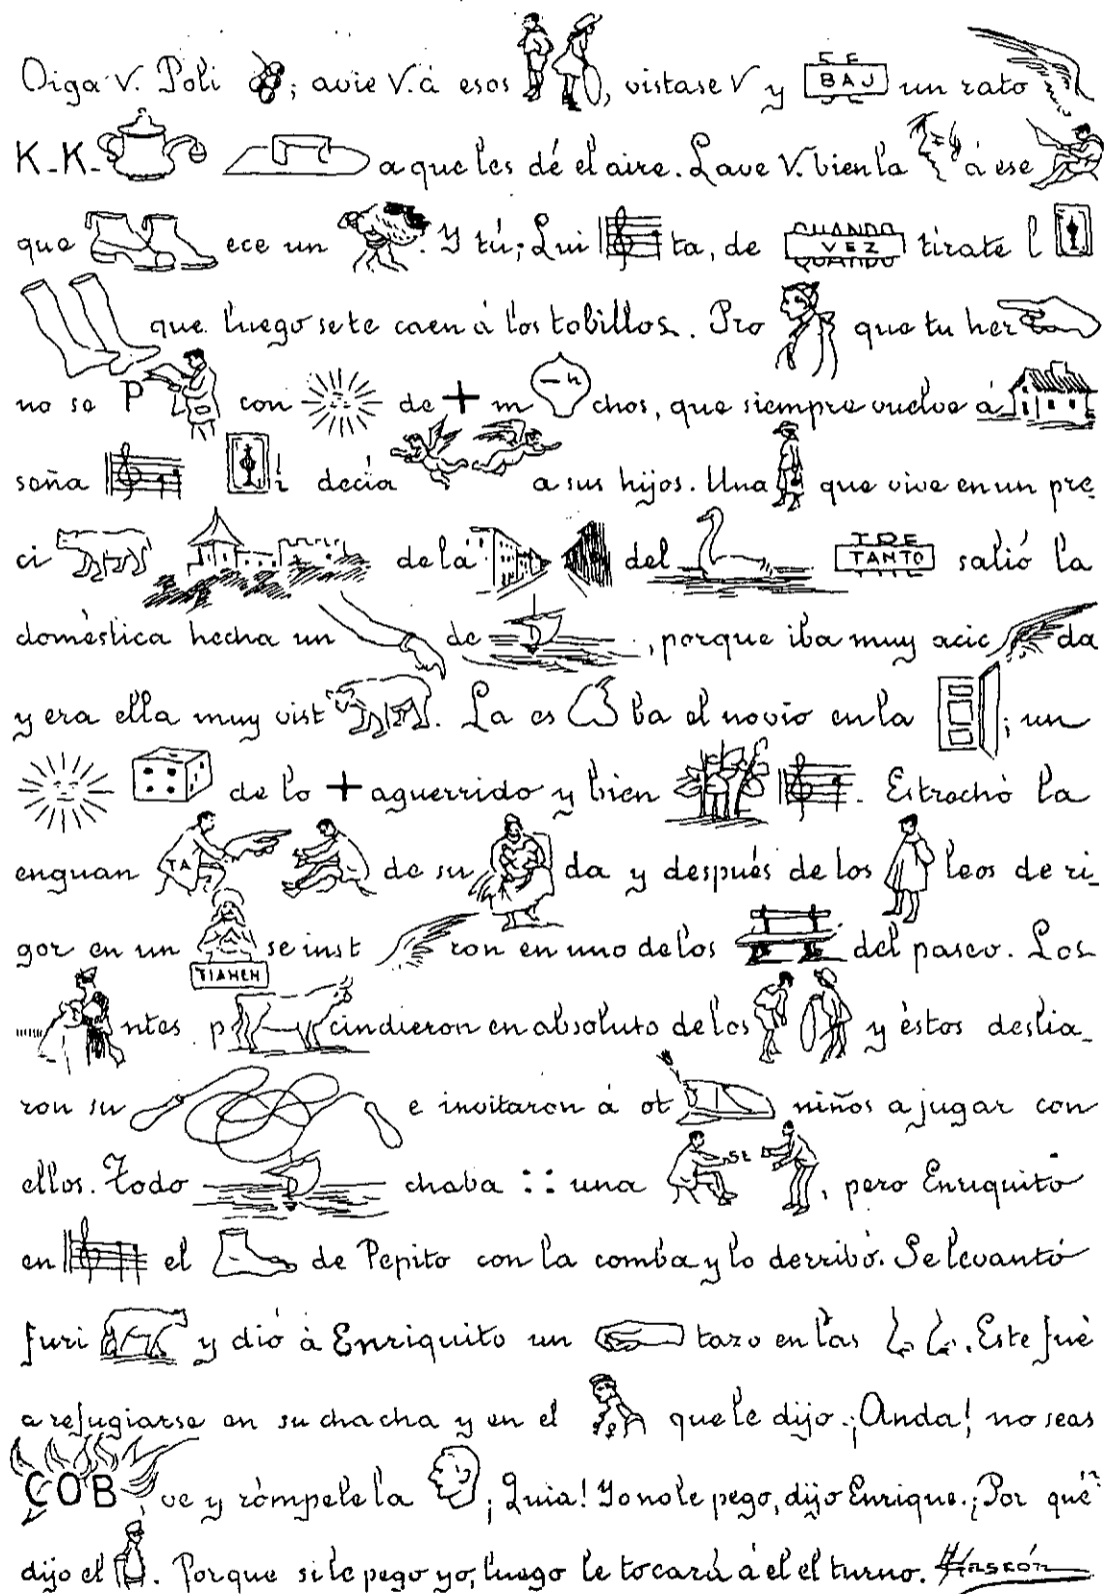 Oiga V. Poli ; avie V. á esos , vistase V y SE BAJ SE un rato
K-K- a que les dé el aire. Lave V. bien la á ese
que ece un . Y tú, Lui ta, de CUANDO VEZ CUANDO tirate l
que luego se te caen á los tobillos. Pro que tu her
no se P con de + m - n chos, que siempre vuelve á
seña i decía a sus hijos. Una que vive en un pre
ci de la del TRE TANTO salió la
doméstica hecha un de , porque iba muy acic da
y era ella muy vist . La es ba el novio en la ; un
de lo + aguerrido y bien . Estrechó la
enguan TA de su da y después de los leos de ri-
gor en un TIAMEN se inst ron en uno de los del paseo. Los
ntes p cindieron en absoluto de los y éstos deslia-
ron su e invitaron á ot niños a jugar con
ellos. Todo chaba :: una SE , pero Enriquito
en el de Pepito con la comba y lo derribó. Se levantó
furi y dió á Enriquito un tazo en las . Este fué
a refugiarse en su chacha y en el que le dijo. ¡Anda! no seas
ÇOB ve y rómpele la ¡Quia! Yo no le pego, dijo Enrique. ¿Por qué?
dijo el . Porque si le pego yo, luego le tocará á el el turno.